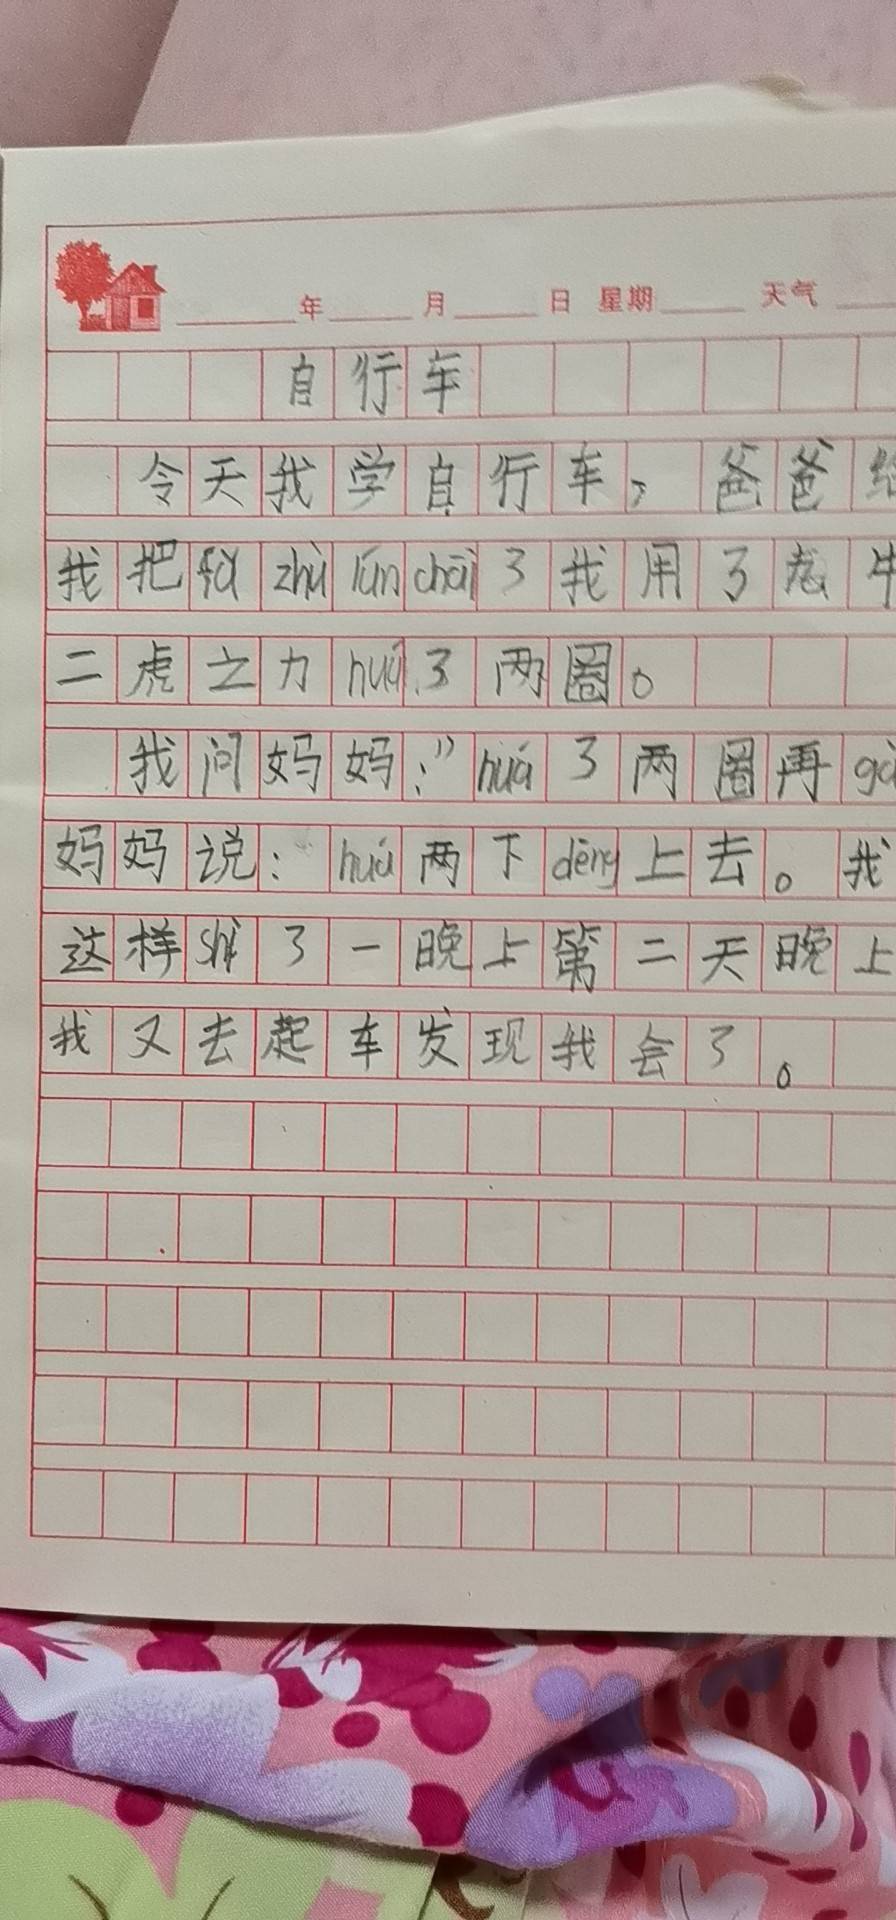 年 月 日 星期 天气
自行车
令天我学自行车，爸爸给
我把fǔ zhù lún chāi了我用了老牛
二虎之力huá了两圈。
我问妈妈：”huá了两圈再
妈妈说：“huá两下dēng上去。我
这样shì了一晚上第二天晚上
我又去起车发现我会了。